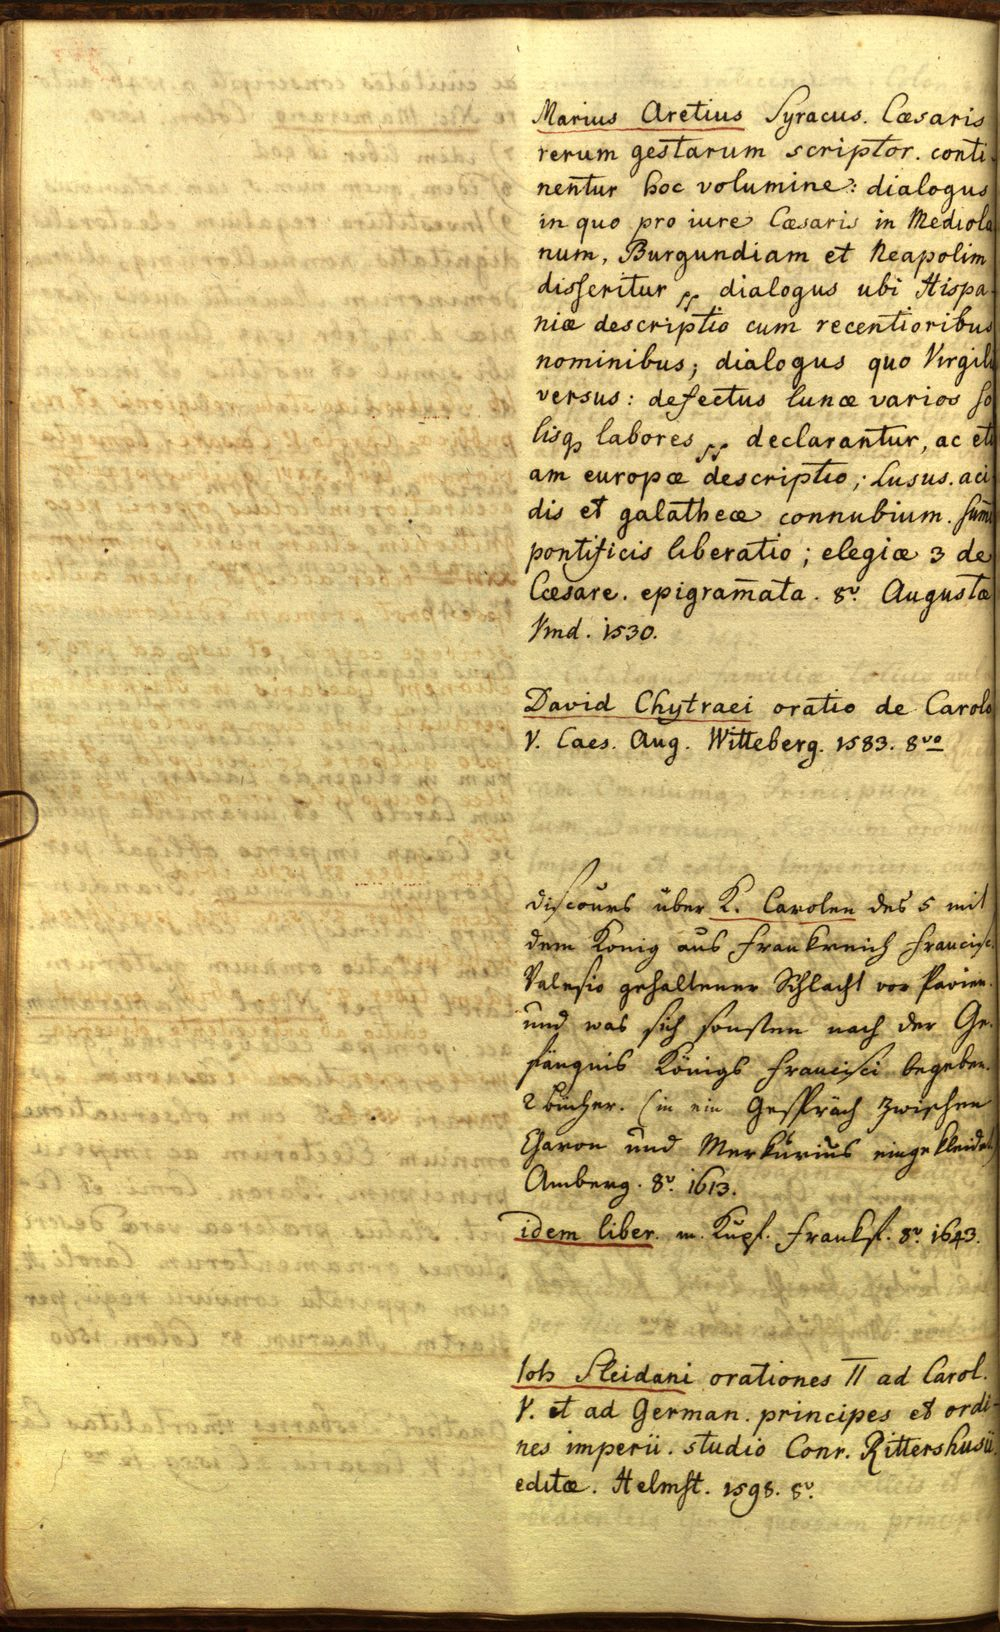 Marius Aretius Syracus. Cæsaris
rerum gestarum scriptor. conti-
nentur hoc volumine: dialogus
in quo pro iure Cæsaris in Mediola
num, Burgundiam et Neapolim
disseritur dialogus ubi Hispa-
niæ descriptio cum recentioribus
nominibus; dialogus quo Virgili
versus: defectus lunæ varios so
lisq labores declarantur, ac eti
am europæ descriptio; Lusus. aci
dis et galatheæ connubium. sum̄i
pontificis liberatio; elegiæ 3 de
Cæsare. epigram̄ata. 8v. Augustæ
Vind. 1530.
David Chytraei oratio de Carolo
V. Caes. Aug. Witteberg. 1583. 8vo
discours über K. Carolen des 5 mit
dem Konig aus Frankreich Francisc.
Valesio gehaltener Schlacht vor Pavien.
und was sich sonsten nach der Ge-
fängnis Königs Francisci begeben.
2 bücher. (in ein Gespräch zwischen
Charon und Merkurius eingekleidet)
Amberg. 8v. 1613.
idem liber. m. Kupf. Frankf. 8v. 1643.
Joh Sleidani orationes II ad Carol.
V. et ad German. principes et ordi-
nes imperii. studio Conr. Rittershusii
editæ. Helmst. 1598. 8v.